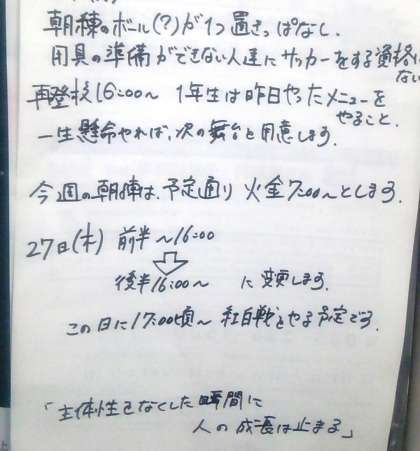 朝練のボール(?)が1つ置きっぱなし。
用具の準備ができない人達にサッカーをする資格はない
再登校16:00〜 1年生は昨日やったメニューをやること。
一生懸命やれば、次の舞台を用意します。
今週の朝練は、予定通り 火金7:00〜とします。
27日(木) 前半〜16:00
後半16:00〜 に変更します。
この日に17:00頃〜 紅白戦をやる予定です。
「主体性をなくした瞬間に
人の成長は止まる」